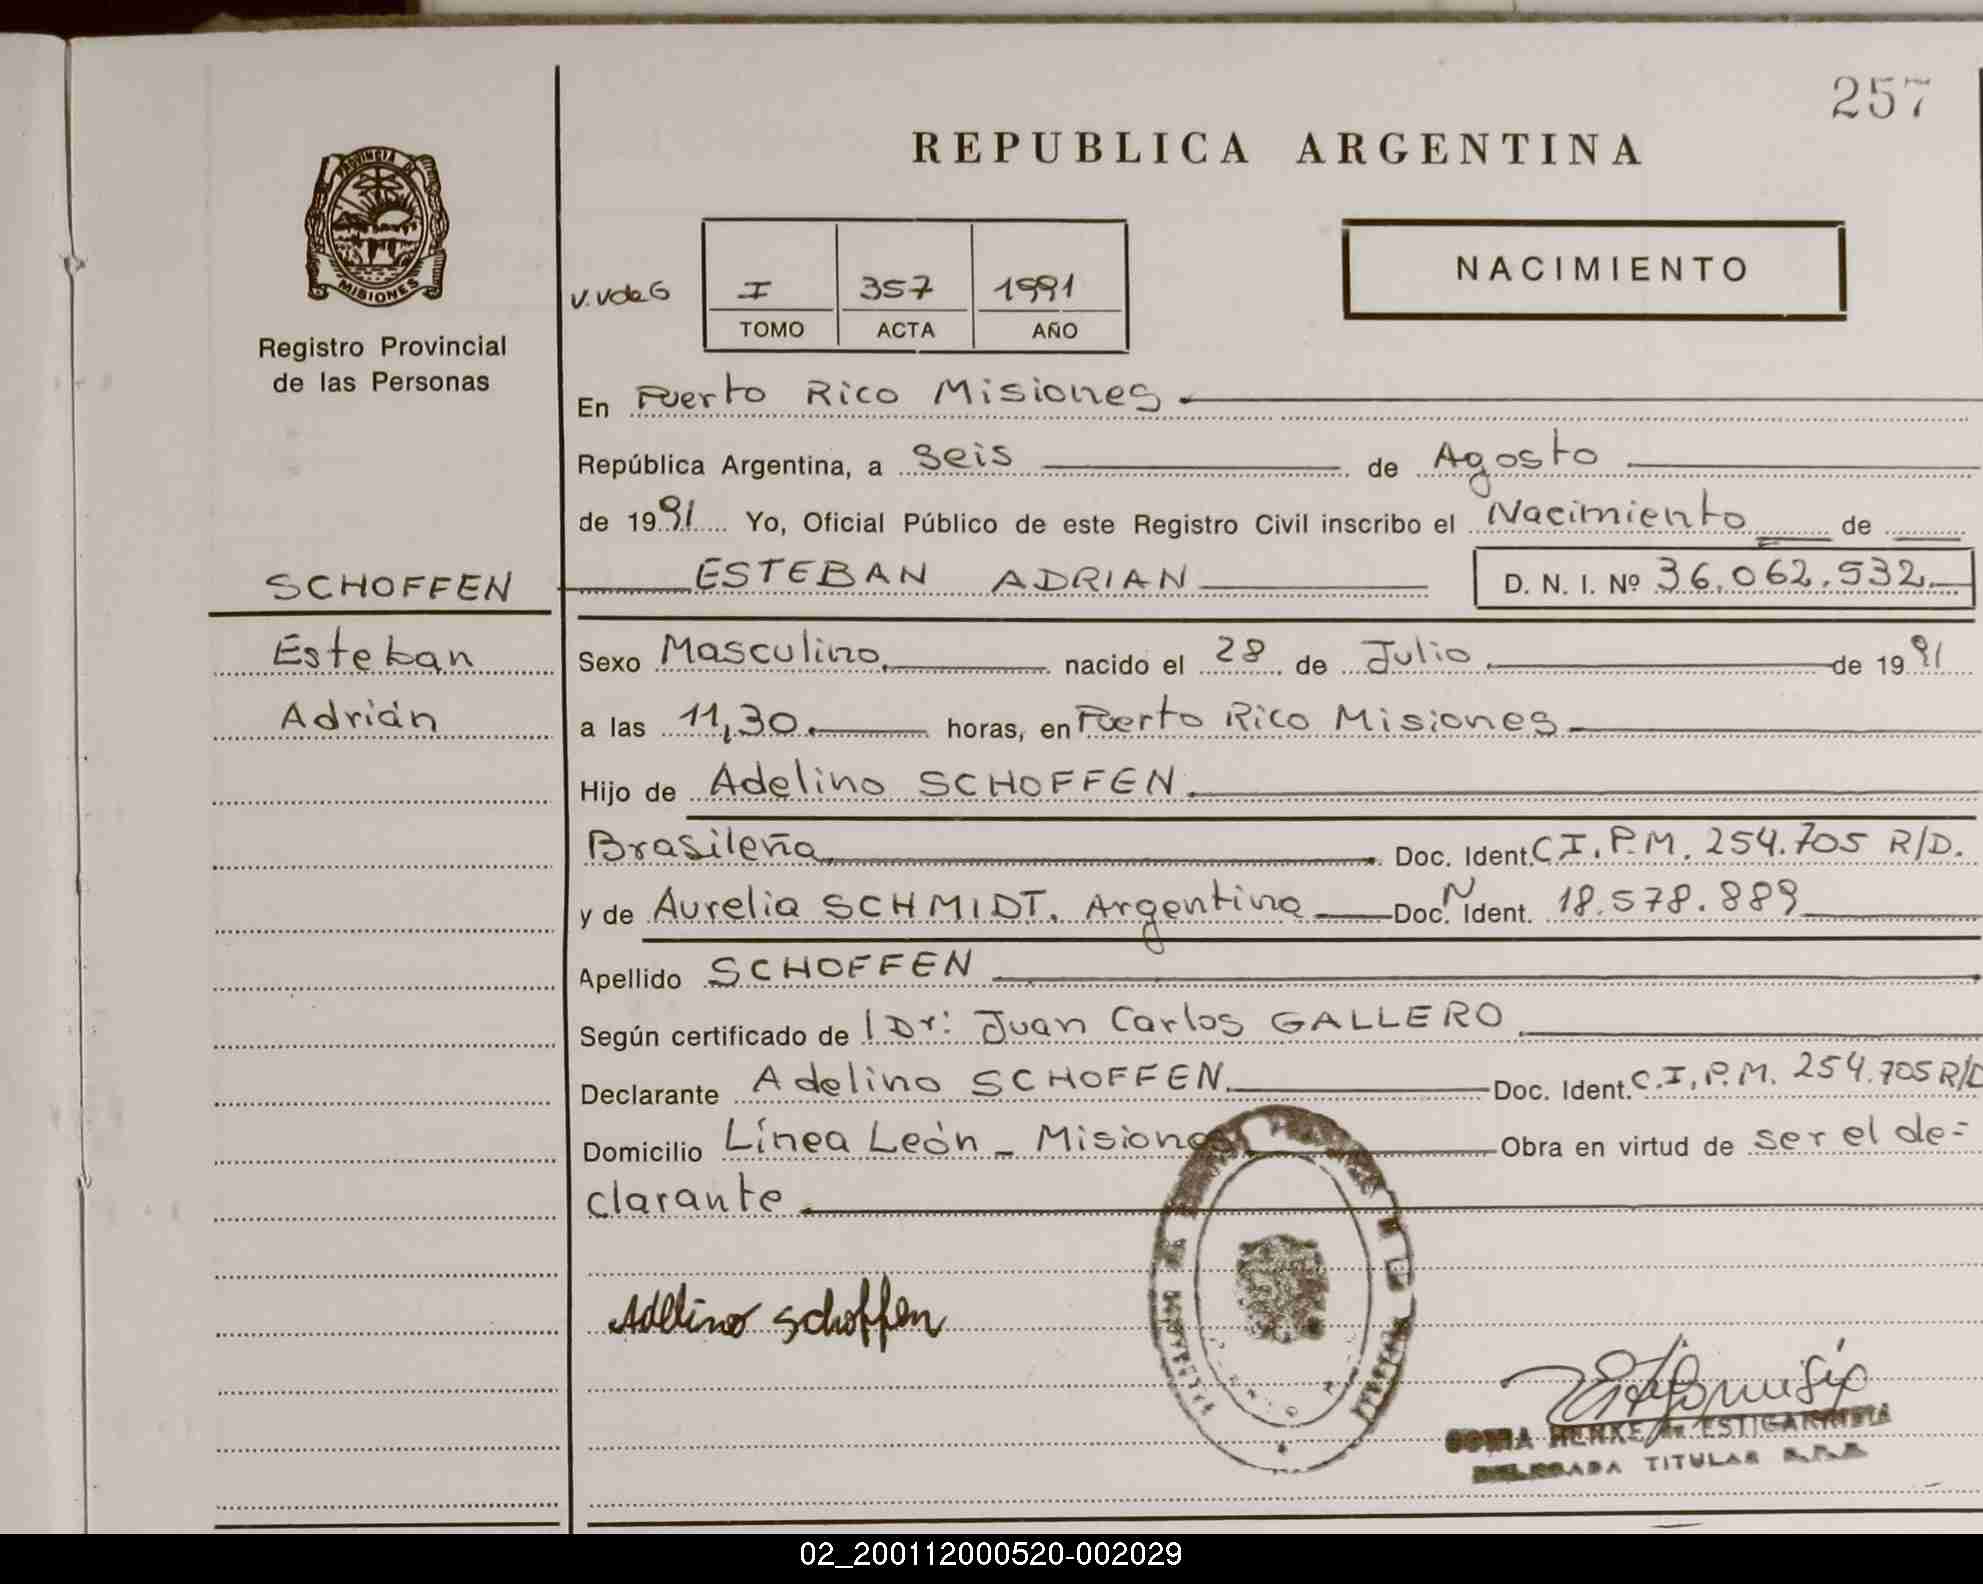 257
REPUBLICA ARGENTINA
NACIMIENTO
PROVINCIA DE
MISIONES
Registro Provincial
de las Personas
V.VdeG
I 357 1991
TOMO ACTA AÑO
En Puerto Rico Misiones
República Argentina, a seis de Agosto
de 1991 Yo, Oficial Público de este Registro Civil inscribo el Nacimiento de
ESTEBAN ADRIAN D. N. I. Nº 36.062.532.
SCHOFFEN
Esteban
Adrián
Sexo Masculino nacido el 28 de Julio de 1991
a las 11,30 horas, en Puerto Rico Misiones
Hijo de Adelino SCHOFFEN
Brasileña Doc. Ident. C.I.P.M. 254.705 R/D.
y de Aurelia SCHMIDT. Argentina Doc. N Ident. 18.578.889
Apellido SCHOFFEN
Según certificado de l Dr: Juan Carlos GALLERO
Declarante Adelino SCHOFFEN Doc. Ident. C.I.P.M. 254.705 R/D
Domicilio Línea León - Misiones Obra en virtud de ser el de=
clarante
Adelino Schoffen
HENKE de ESTIGARRIBIA
DELEGADA TITULAR R.P.P.
02_200112000520-002029